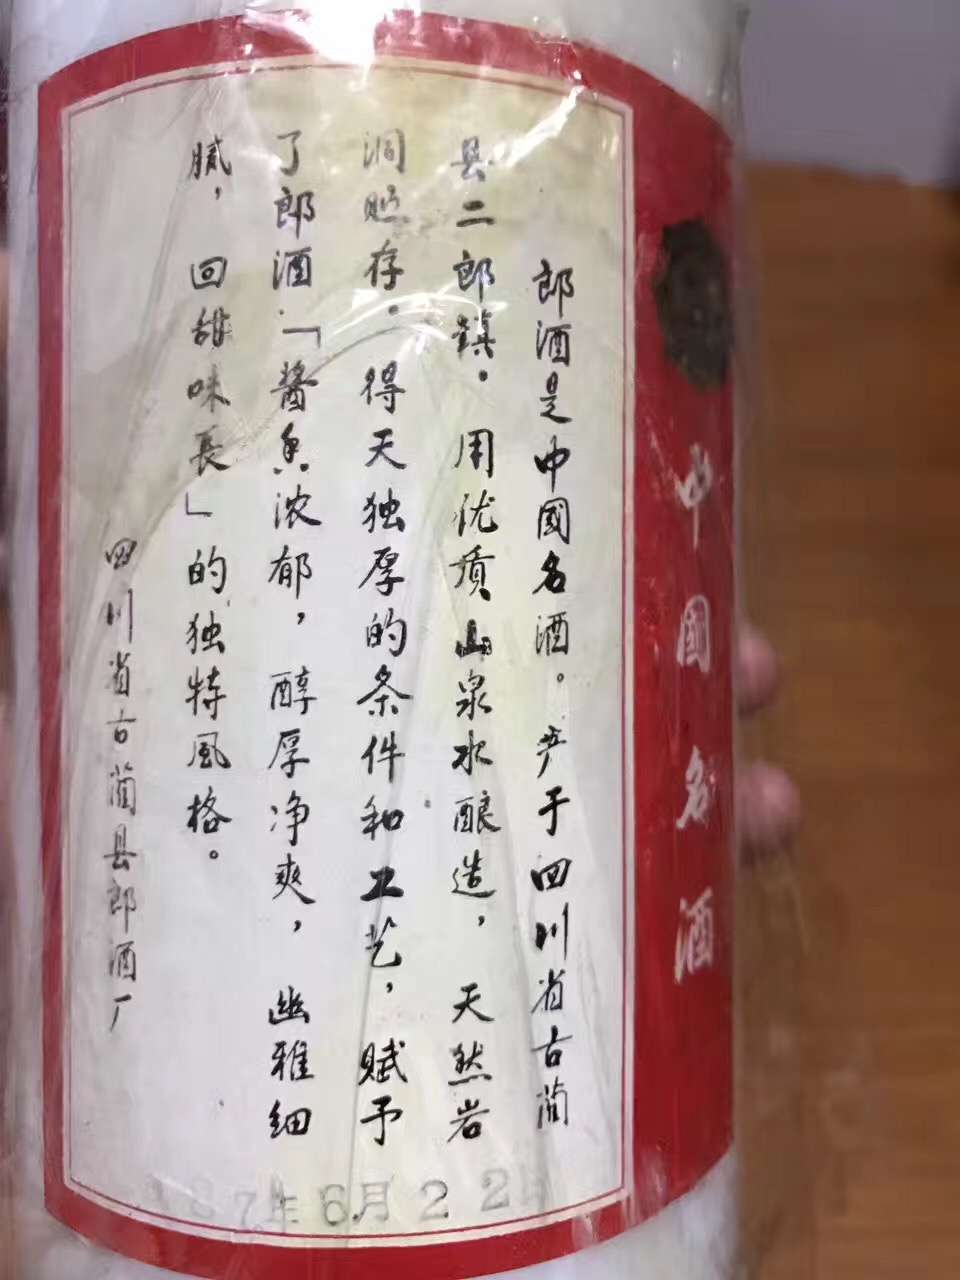 中國名酒
郎酒是中國名酒。产于四川省古蔺
县二郎镇。用优质山泉水酿造，天然岩
洞贮存。得天独厚的条件和工艺，赋予
了郎酒「醬香浓郁，醇厚净爽，幽雅细
腻，回甜味長」的独特風格。
四川省古蔺县郎酒厂
87年6月22